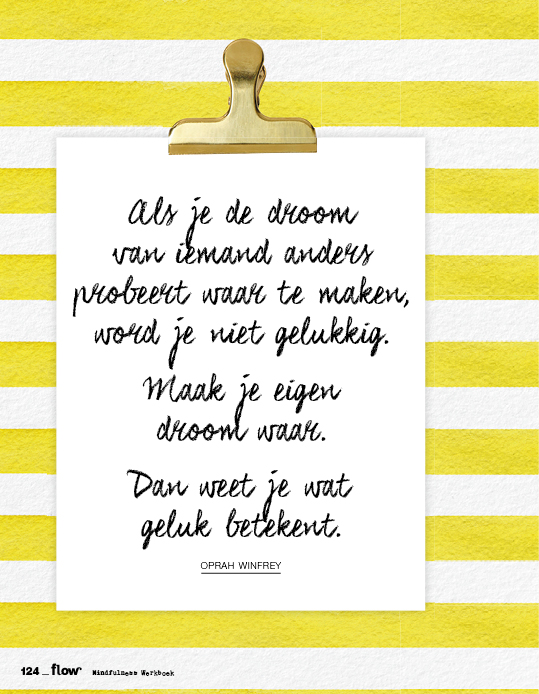 Als je de droom
van iemand anders
probeert waar te maken,
word je niet gelukkig.
Maak je eigen
droom waar.
Dan weet je wat
geluk betekent.
OPRAH WINFREY
124_flow Mindfulness Werkboek